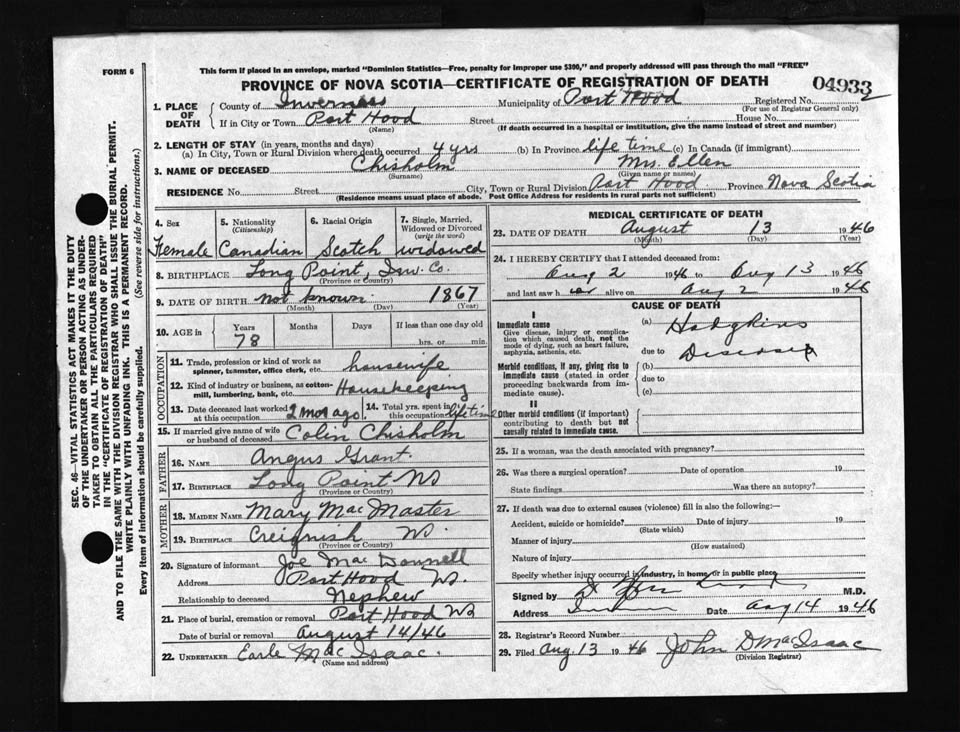 FORM 6
This form if placed in an envelope, marked "Dominion Statistics—Free, penalty for improper use $300," and properly addressed will pass through the mail "FREE"
PROVINCE OF NOVA SCOTIA—CERTIFICATE OF REGISTRATION OF DEATH
04933
1. PLACE OF DEATH County of Inverness Municipality of Port Hood Registered No.
(For use of Registrar General only)
If in City or Town Port Hood Street House No.
(Name) (If death occurred in a hospital or institution, give the name instead of street and number)
2. LENGTH OF STAY (in years, months and days)
(a) In City, Town or Rural Division where death occurred 4 yrs (b) In Province life time (c) In Canada (if immigrant)
3. NAME OF DECEASED Chisholm Mrs. Ellen
(Surname) (Given name or names)
RESIDENCE No. Street City, Town or Rural Division Port Hood Province Nova Scotia
(Residence means usual place of abode. Post Office Address for residents in rural parts not sufficient)
4. Sex 5. Nationality (Citizenship) 6. Racial Origin 7. Single, Married, Widowed or Divorced (write the word)
Female Canadian Scotch widowed
8. BIRTHPLACE Long Point, Inv. Co.
(Province or Country)
9. DATE OF BIRTH not known 1867
(Month) (Day) (Year)
10. AGE in Years Months Days If less than one day old
78 hrs. or min.
OCCUPATION
11. Trade, profession or kind of work as spinner, teamster, office clerk, etc. housewife
12. Kind of industry or business, as cotton-mill, lumbering, bank, etc. Housekeeping
13. Date deceased last worked at this occupation 2 mos ago 14. Total yrs. spent in this occupation life time
15. If married give name of wife or husband of deceased Colin Chisholm
FATHER
16. NAME Angus Grant
17. BIRTHPLACE Long Point NS
(Province or Country)
MOTHER
18. MAIDEN NAME Mary MacMaster
19. BIRTHPLACE Creignish NS
(Province or Country)
20. Signature of informant Joe MacDonnell
Address Port Hood NS.
Relationship to deceased Nephew
21. Place of burial, cremation or removal Port Hood NS
Date of burial or removal August 14/46
22. UNDERTAKER Earle MacIsaac.
(Name and address)
MEDICAL CERTIFICATE OF DEATH
23. DATE OF DEATH August 13 1946
(Month) (Day) (Year)
24. I HEREBY CERTIFY that I attended deceased from:
Aug 2 1946 to Aug 13 1946
and last saw her alive on Aug 2 1946
CAUSE OF DEATH
I
Immediate cause
Give disease, injury or complication which caused death, not the mode of dying, such as heart failure, asphyxia, asthenia, etc.
(a) Hodgkins
due to Disease
Morbid conditions, if any, giving rise to immediate cause (stated in order proceeding backwards from immediate cause).
(b)
due to
(c)
II
Other morbid conditions (if important) contributing to death but not causally related to immediate cause.
25. If a woman, was the death associated with pregnancy?
26. Was there a surgical operation? Date of operation 19
State findings Was there an autopsy?
27. If death was due to external causes (violence) fill in also the following:—
Accident, suicide or homicide? Date of injury 19
(State which)
Manner of injury
(How sustained)
Nature of injury
Specify whether injury occurred in industry, in home or in public place
Signed by M.D.
Address Date Aug 14 1946
28. Registrar's Record Number
29. Filed Aug. 13 1946 John D MacIsaac
(Division Registrar)
SEC. 46—VITAL STATISTICS ACT MAKES IT THE DUTY
OF THE UNDERTAKER OR PERSON ACTING AS UNDERTAKER TO OBTAIN ALL THE PARTICULARS REQUIRED
IN THE "CERTIFICATE OF REGISTRATION OF DEATH"
AND TO FILE THE SAME WITH THE DIVISION REGISTRAR WHO SHALL ISSUE THE BURIAL PERMIT.
WRITE PLAINLY WITH UNFADING INK. THIS IS A PERMANENT RECORD.
Every item of information should be carefully supplied. (See reverse side for instructions.)